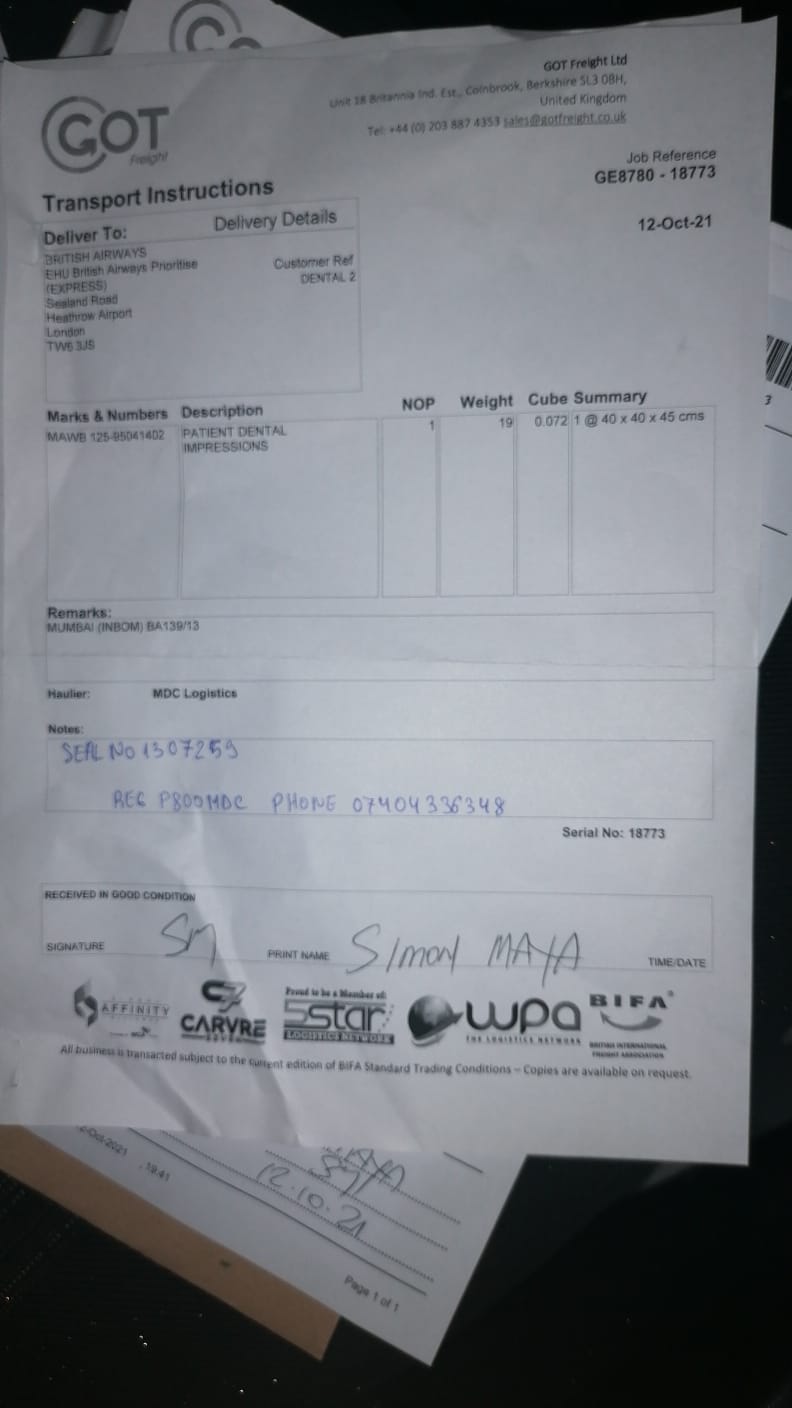 GOT
Freight
GOT Freight Ltd
Unit 18 Britannia Ind. Est., Colnbrook, Berkshire SL3 0BH,
United Kingdom
Tel: +44 (0) 203 887 4353 sales@gotfreight.co.uk
Job Reference
GE8780 - 18773
12-Oct-21
Transport Instructions
Deliver To: Delivery Details
BRITISH AIRWAYS
EHU British Airways Prioritise
(EXPRESS)
Sealand Road
Heathrow Airport
London
TW6 3JS
Customer Ref
DENTAL 2
Marks & Numbers Description NOP Weight Cube Summary
MAWB 125-95041402 PATIENT DENTAL 1 19 0.072 1 @ 40 x 40 x 45 cms
IMPRESSIONS
Remarks:
MUMBAI (INBOM) BA139/13
Haulier: MDC Logistics
Notes:
SEAL No 1307259
REG P800MDC PHONE 07404336348
Serial No: 18773
RECEIVED IN GOOD CONDITION
SIGNATURE SM PRINT NAME SIMON MAYA TIME/DATE
AFFINITY
CARVRE
Proud to be a Member of:
5star
LOGISTICS NETWORK
wpa
THE LOGISTICS NETWORK
BIFA
BRITISH INTERNATIONAL
FREIGHT ASSOCIATION
All business is transacted subject to the current edition of BIFA Standard Trading Conditions – Copies are available on request.
-Oct-2021 , 19:41
MAYA
SM
12.10.21
Page 1 of 1
3